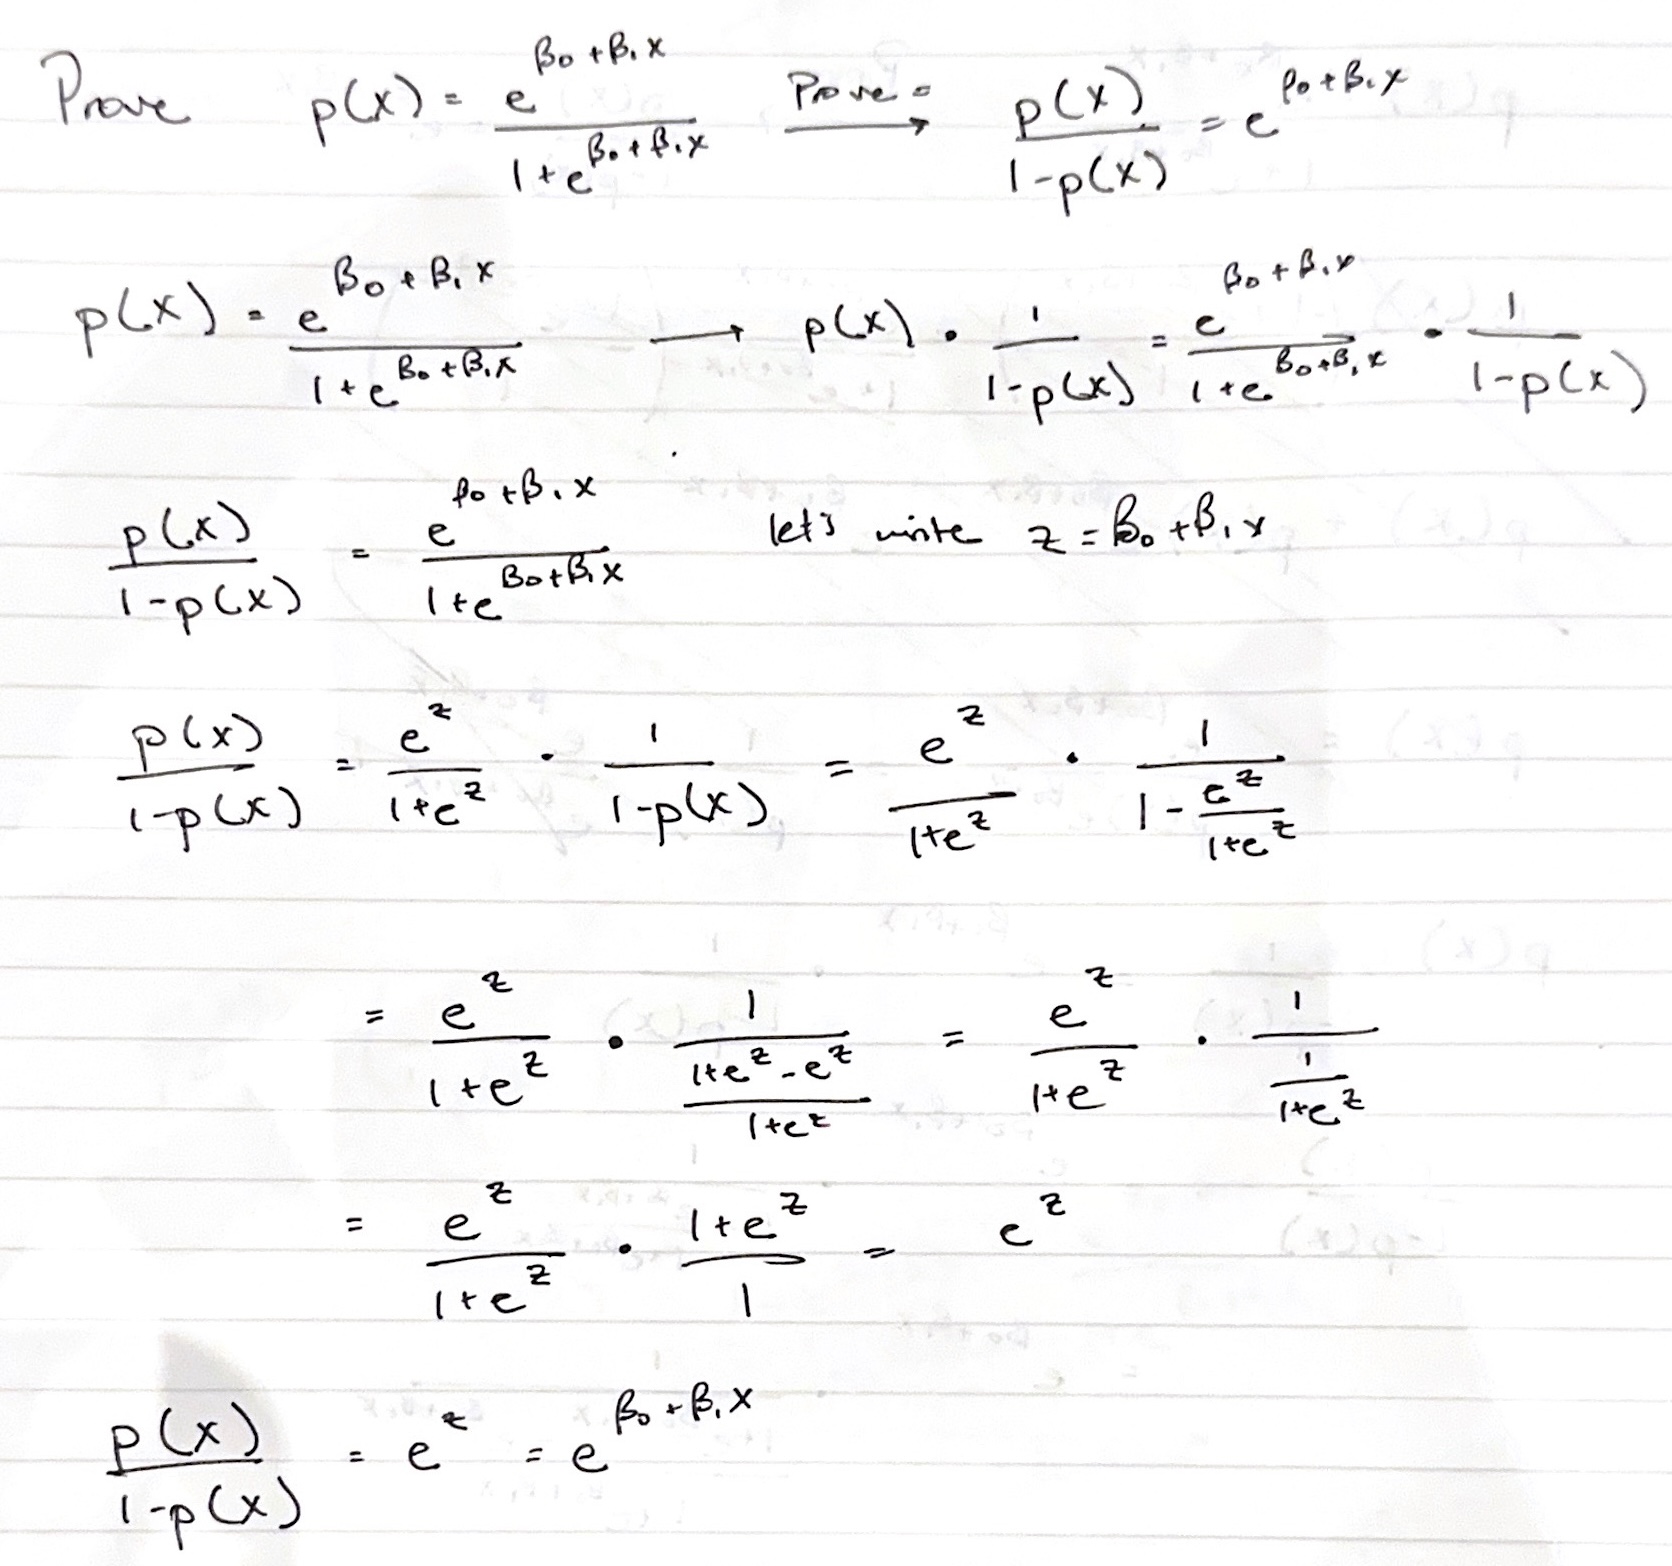 Prove p(X) = e^{β₀+β₁X} / (1+e^{β₀+β₁X}) Prove = → p(X) / (1-p(X)) = e^{β₀+β₁X}
p(X) = e^{β₀+β₁X} / (1+e^{β₀+β₁X}) → p(X) · 1 / (1-p(X)) = e^{β₀+β₁X} / (1+e^{β₀+β₁X}) · 1 / (1-p(X))
p(X) / (1-p(X)) = e^{β₀+β₁X} / (1+e^{β₀+β₁X}) let's write z = β₀+β₁X
p(X) / (1-p(X)) = e^z / (1+e^z) · 1 / (1-p(X)) = e^z / (1+e^z) · 1 / (1 - e^z / (1+e^z))
= e^z / (1+e^z) · 1 / ((1+e^z-e^z) / (1+e^z)) = e^z / (1+e^z) · 1 / (1 / (1+e^z))
= e^z / (1+e^z) · (1+e^z) / 1 = e^z
p(X) / (1-p(X)) = e^z = e^{β₀+β₁X}